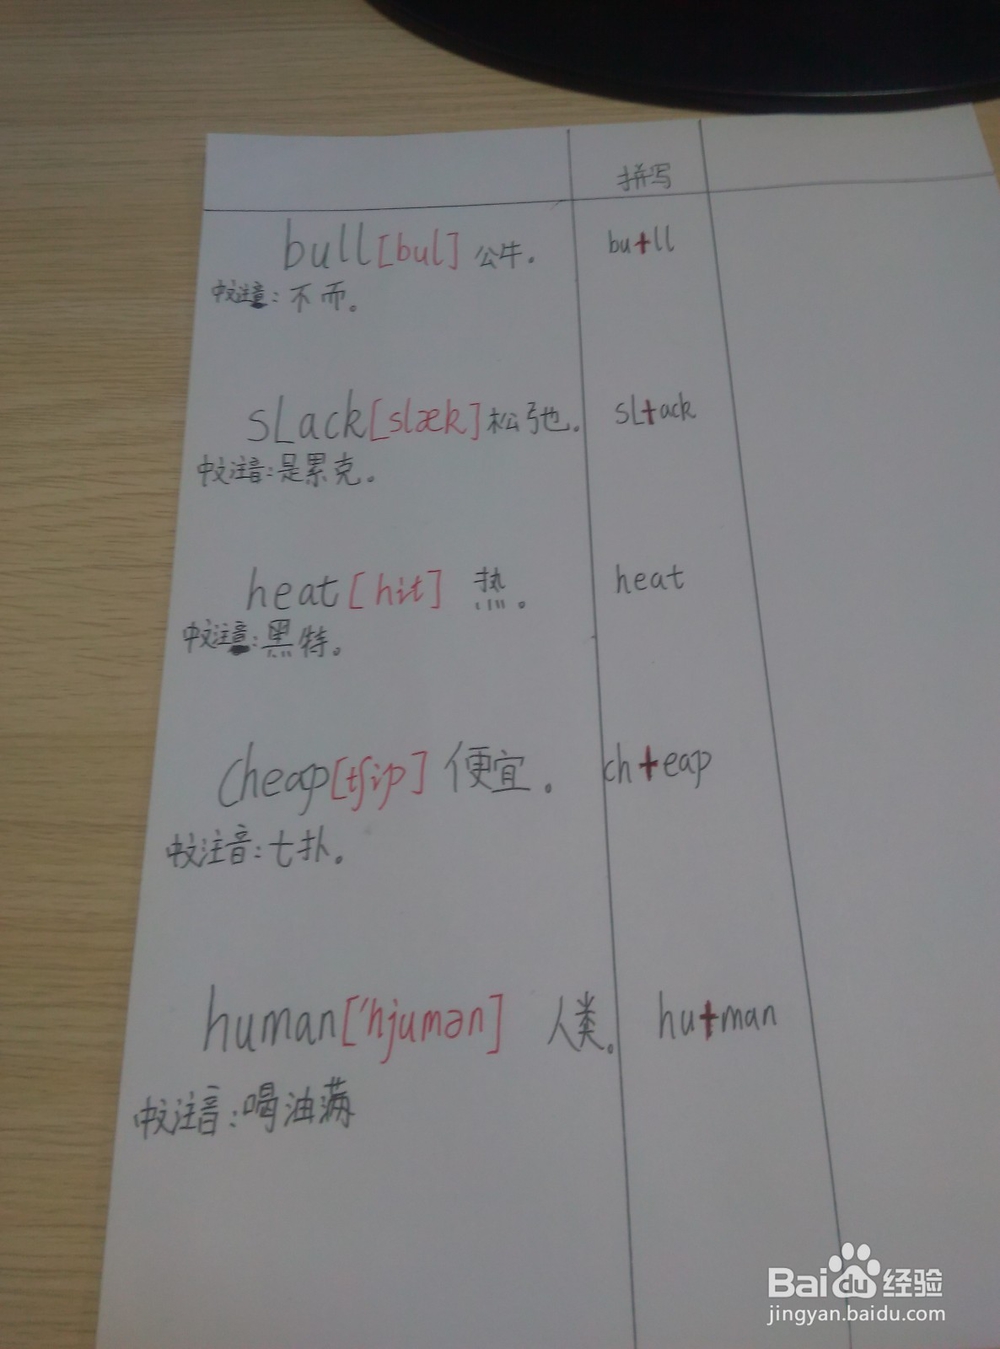 拼写
bull[bul] 公牛. bu+ll
中文注音:不而。
sLack[slæk]松弛. sl+ack
中文注音:是累克。
heat[hit] 热。 heat
中文注音:黑特。
Cheap[tʃip] 便宜. ch+eap
中文注音:七扑。
human['hjumən] 人类。 hu+man
中文注音:喝油满
Baidu经验
jingyan.baidu.com